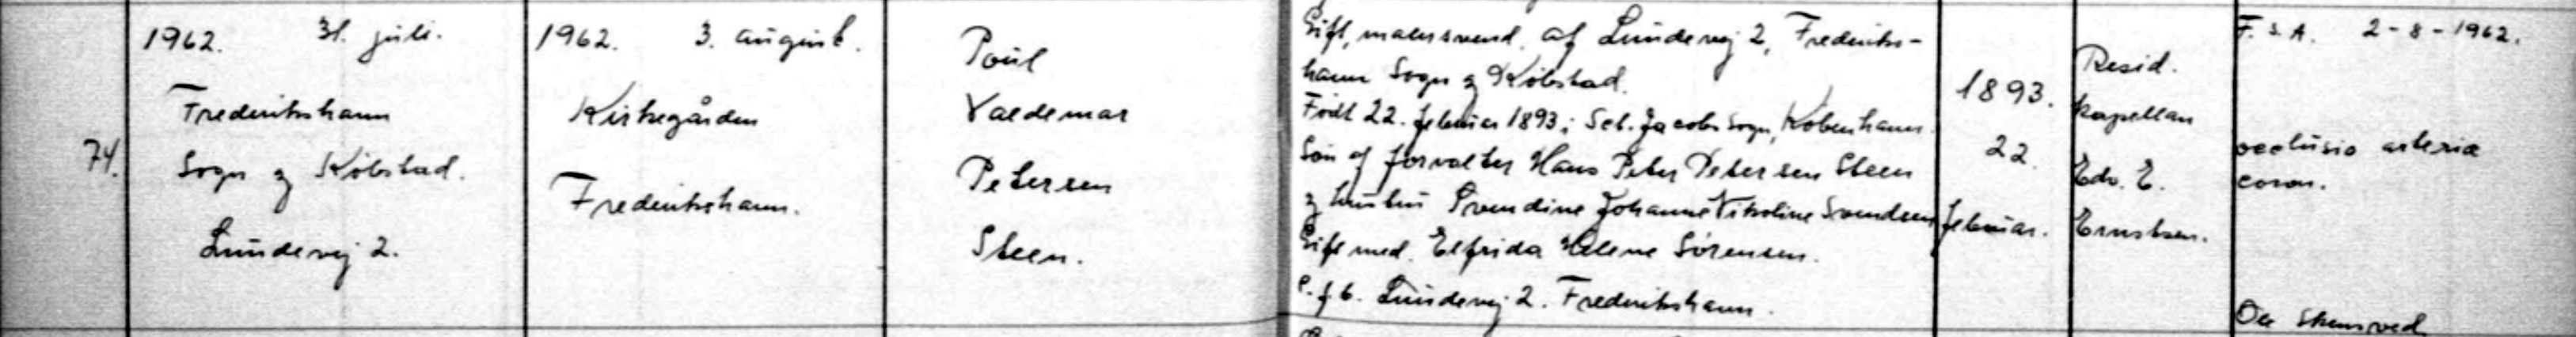 74.
1962. 31. juli.
Frederikshavn
Sogn og Købstad.
Lundevej 2.
1962. 3. august.
Kirkegården
Frederikshavn.
Poul
Valdemar
Petersen
Steen.
Gift, malersvend. af Lundevej 2, Frederiks-
havn Sogn og Købstad.
Født 22. februar 1893 i Sct. Jacobs Sogn, København.
Søn af forvalter Hans Peter Petersen Steen
og hustru Svendine Johanne Nikoline Svendsen
Gift med. Elfrida Helene Sørensen.
S.f.b. Lundevej 2. Frederikshavn.
1893.
22.
februar.
Resid.
kapellan
Edv. E.
Ernstsen.
F. S. A. 2-8-1962.
occlusio arteria
coron.